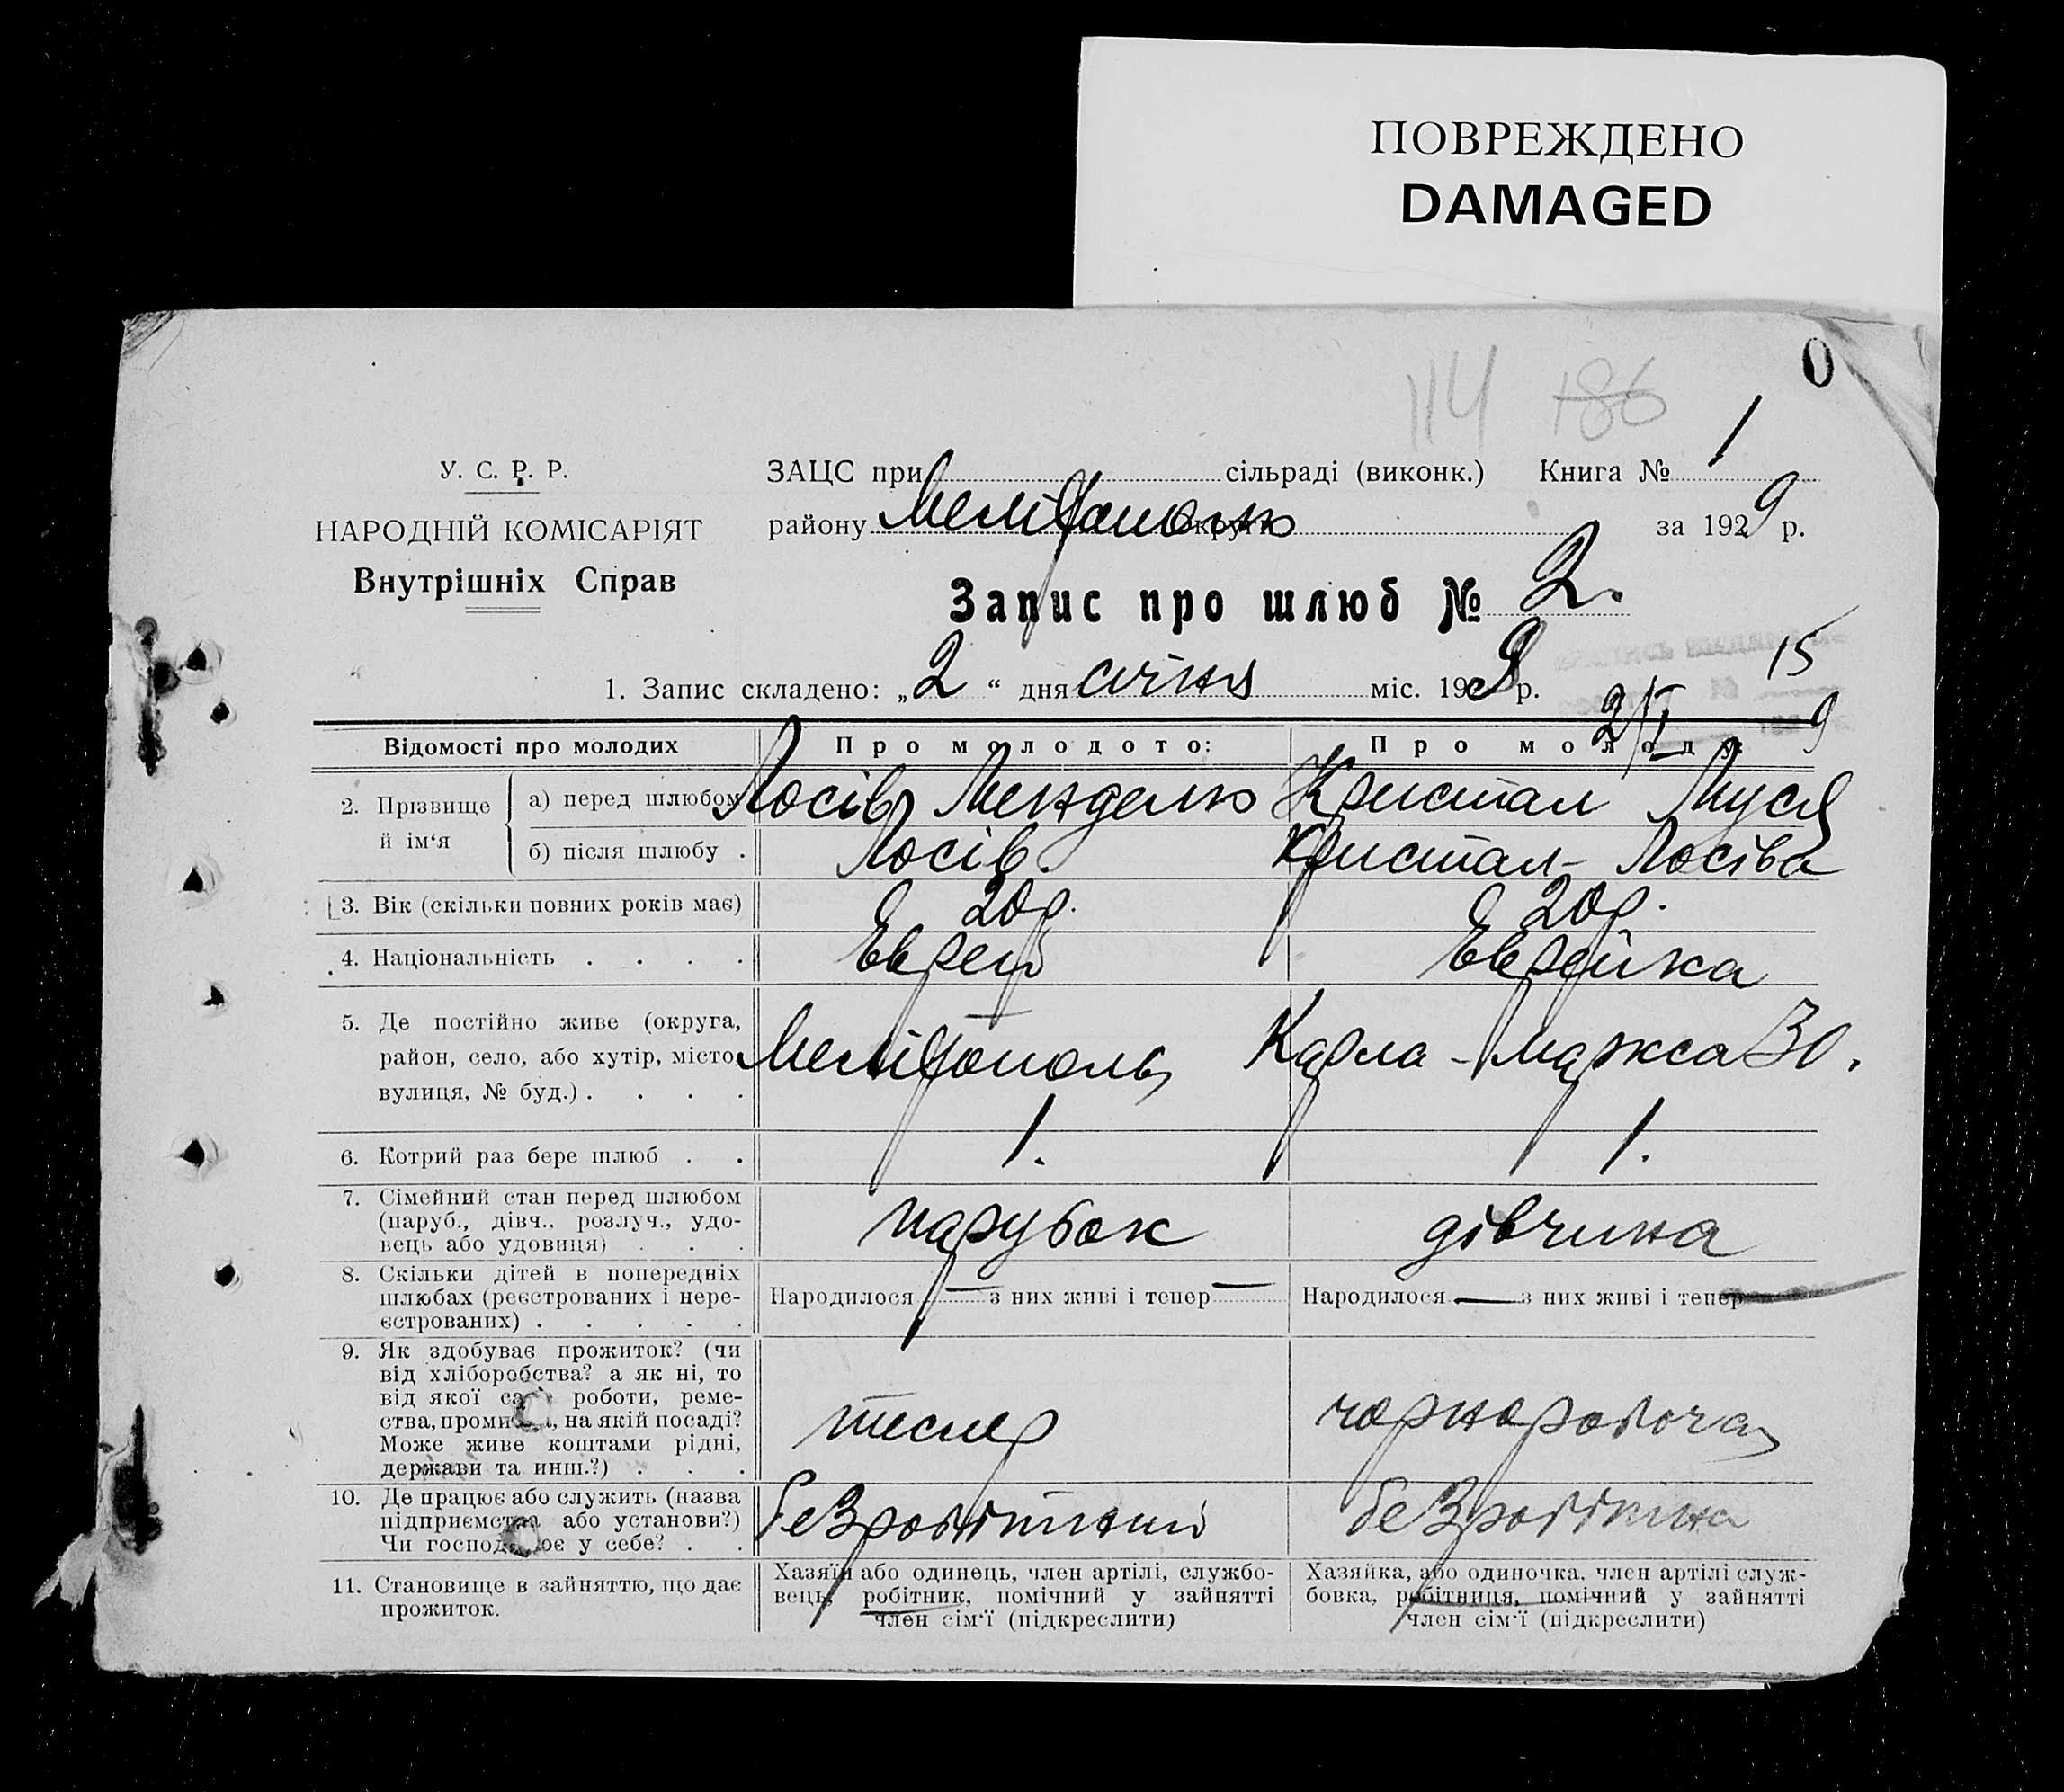 ПОВРЕЖДЕНО
DAMAGED
0
114 186
У. С. Р. Р.
НАРОДНІЙ КОМІСАРІЯТ
Внутрішніх Справ
ЗАЦС при сільраді (виконк.) Книга № 1
району Мелітополь округи за 1929 р.
Запис про шлюб № 2.
1. Запис складено: „2“ дня січня міс. 1929 р.
15
2/I 9
Відомості про молодих Про молодого: Про молоду:
2. Прізвище й ім‘я
а) перед шлюбом Лосів Мендель Кристал Муся
б) після шлюбу . Лосів. Кристал-Лосіва
3. Вік (скільки повних років має) 20 р. 20 р.
4. Національність . . . . Еврей Еврейка
5. Де постійно живе (округа,
район, село, або хутір, місто, Мелітополь Карла-Маркса 30.
вулиця, № буд.) . . . .
6. Котрий раз бере шлюб . . 1. 1.
7. Сімейний стан перед шлюбом
(паруб., дівч., розлуч., удо- парубок дівчина
вець або удовиця) . . .
8. Скільки дітей в попередніх
шлюбах (реєстрованих і нере- Народилося — з них живі і тепер — Народилося — з них живі і тепер —
єстрованих) . . . . .
9. Як здобуває прожиток? (чи
від хліборобства? а як ні, то
від якої са роботи, реме-
ства, проми , на якій посаді? тесляр чорноробоча
Може живе коштами рідні,
держави та инш.?) . . .
10. Де працює або служить (назва
підприємства або установи?) безробітний безробітна
Чи господ ює у себе? . .
11. Становище в зайняттю, що дає
прожиток.
Хазяїн або одинець, член артілі, службо-
вець, робітник, помічний у зайнятті
член сім‘ї (підкреслити)
Хазяйка, або одиночка, член артілі служ-
бовка, робітниця, помічний у зайнятті
член сім‘ї (підкреслити)